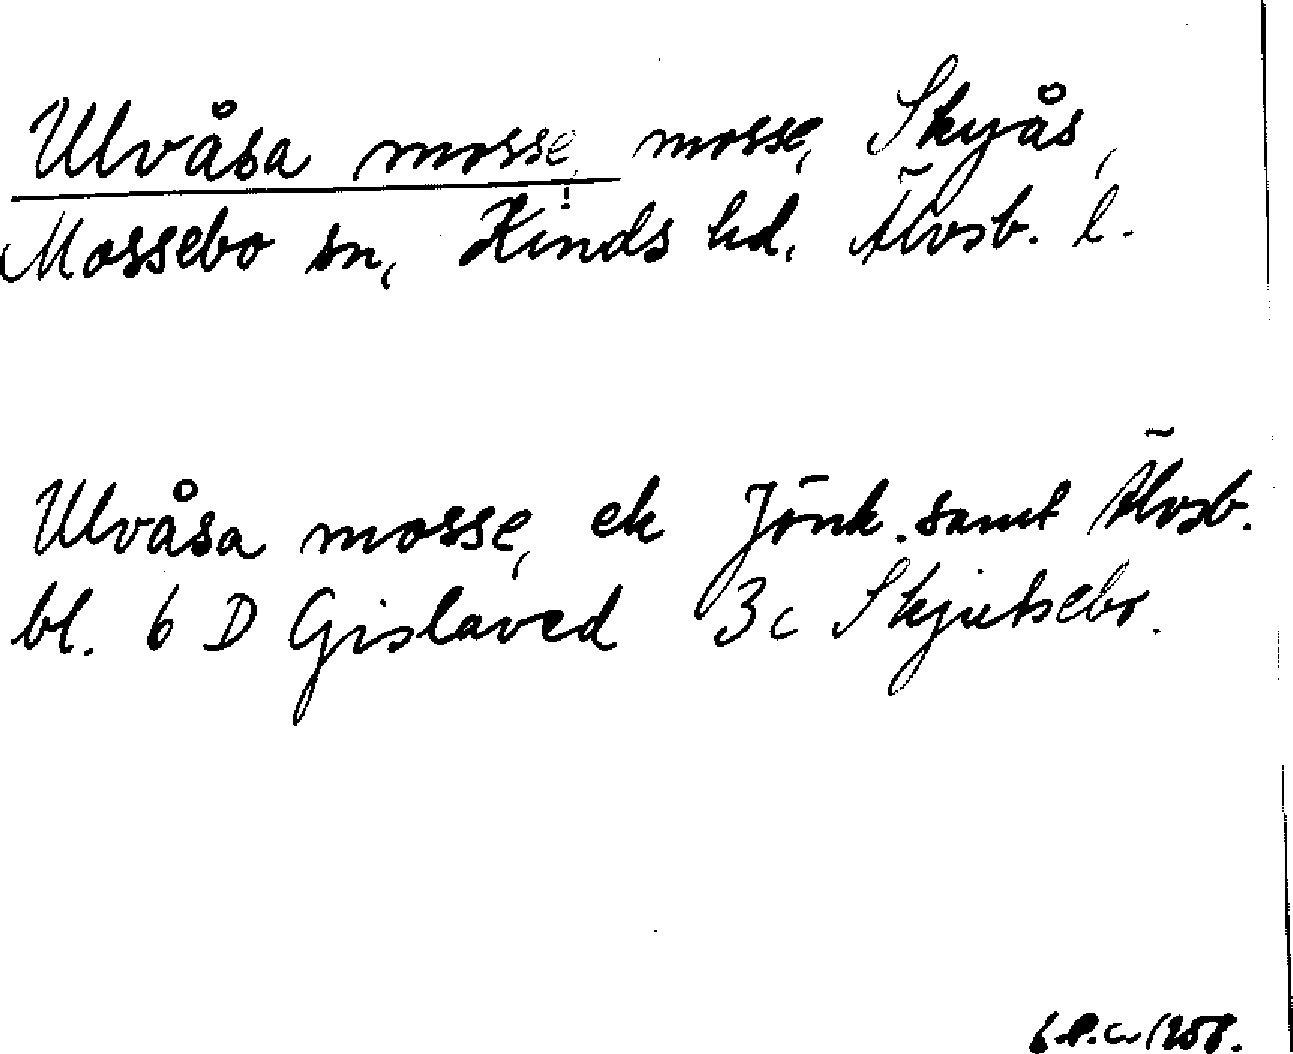 Ulvåsa mosse, mosse, Skyås,
Mossebo sn, Kinds hd, Älvsb. l.
Ulvåsa mosse, ek Jönk. samt Älvsb.
bl. 6 D Gislaved 3c Skjutsebo.